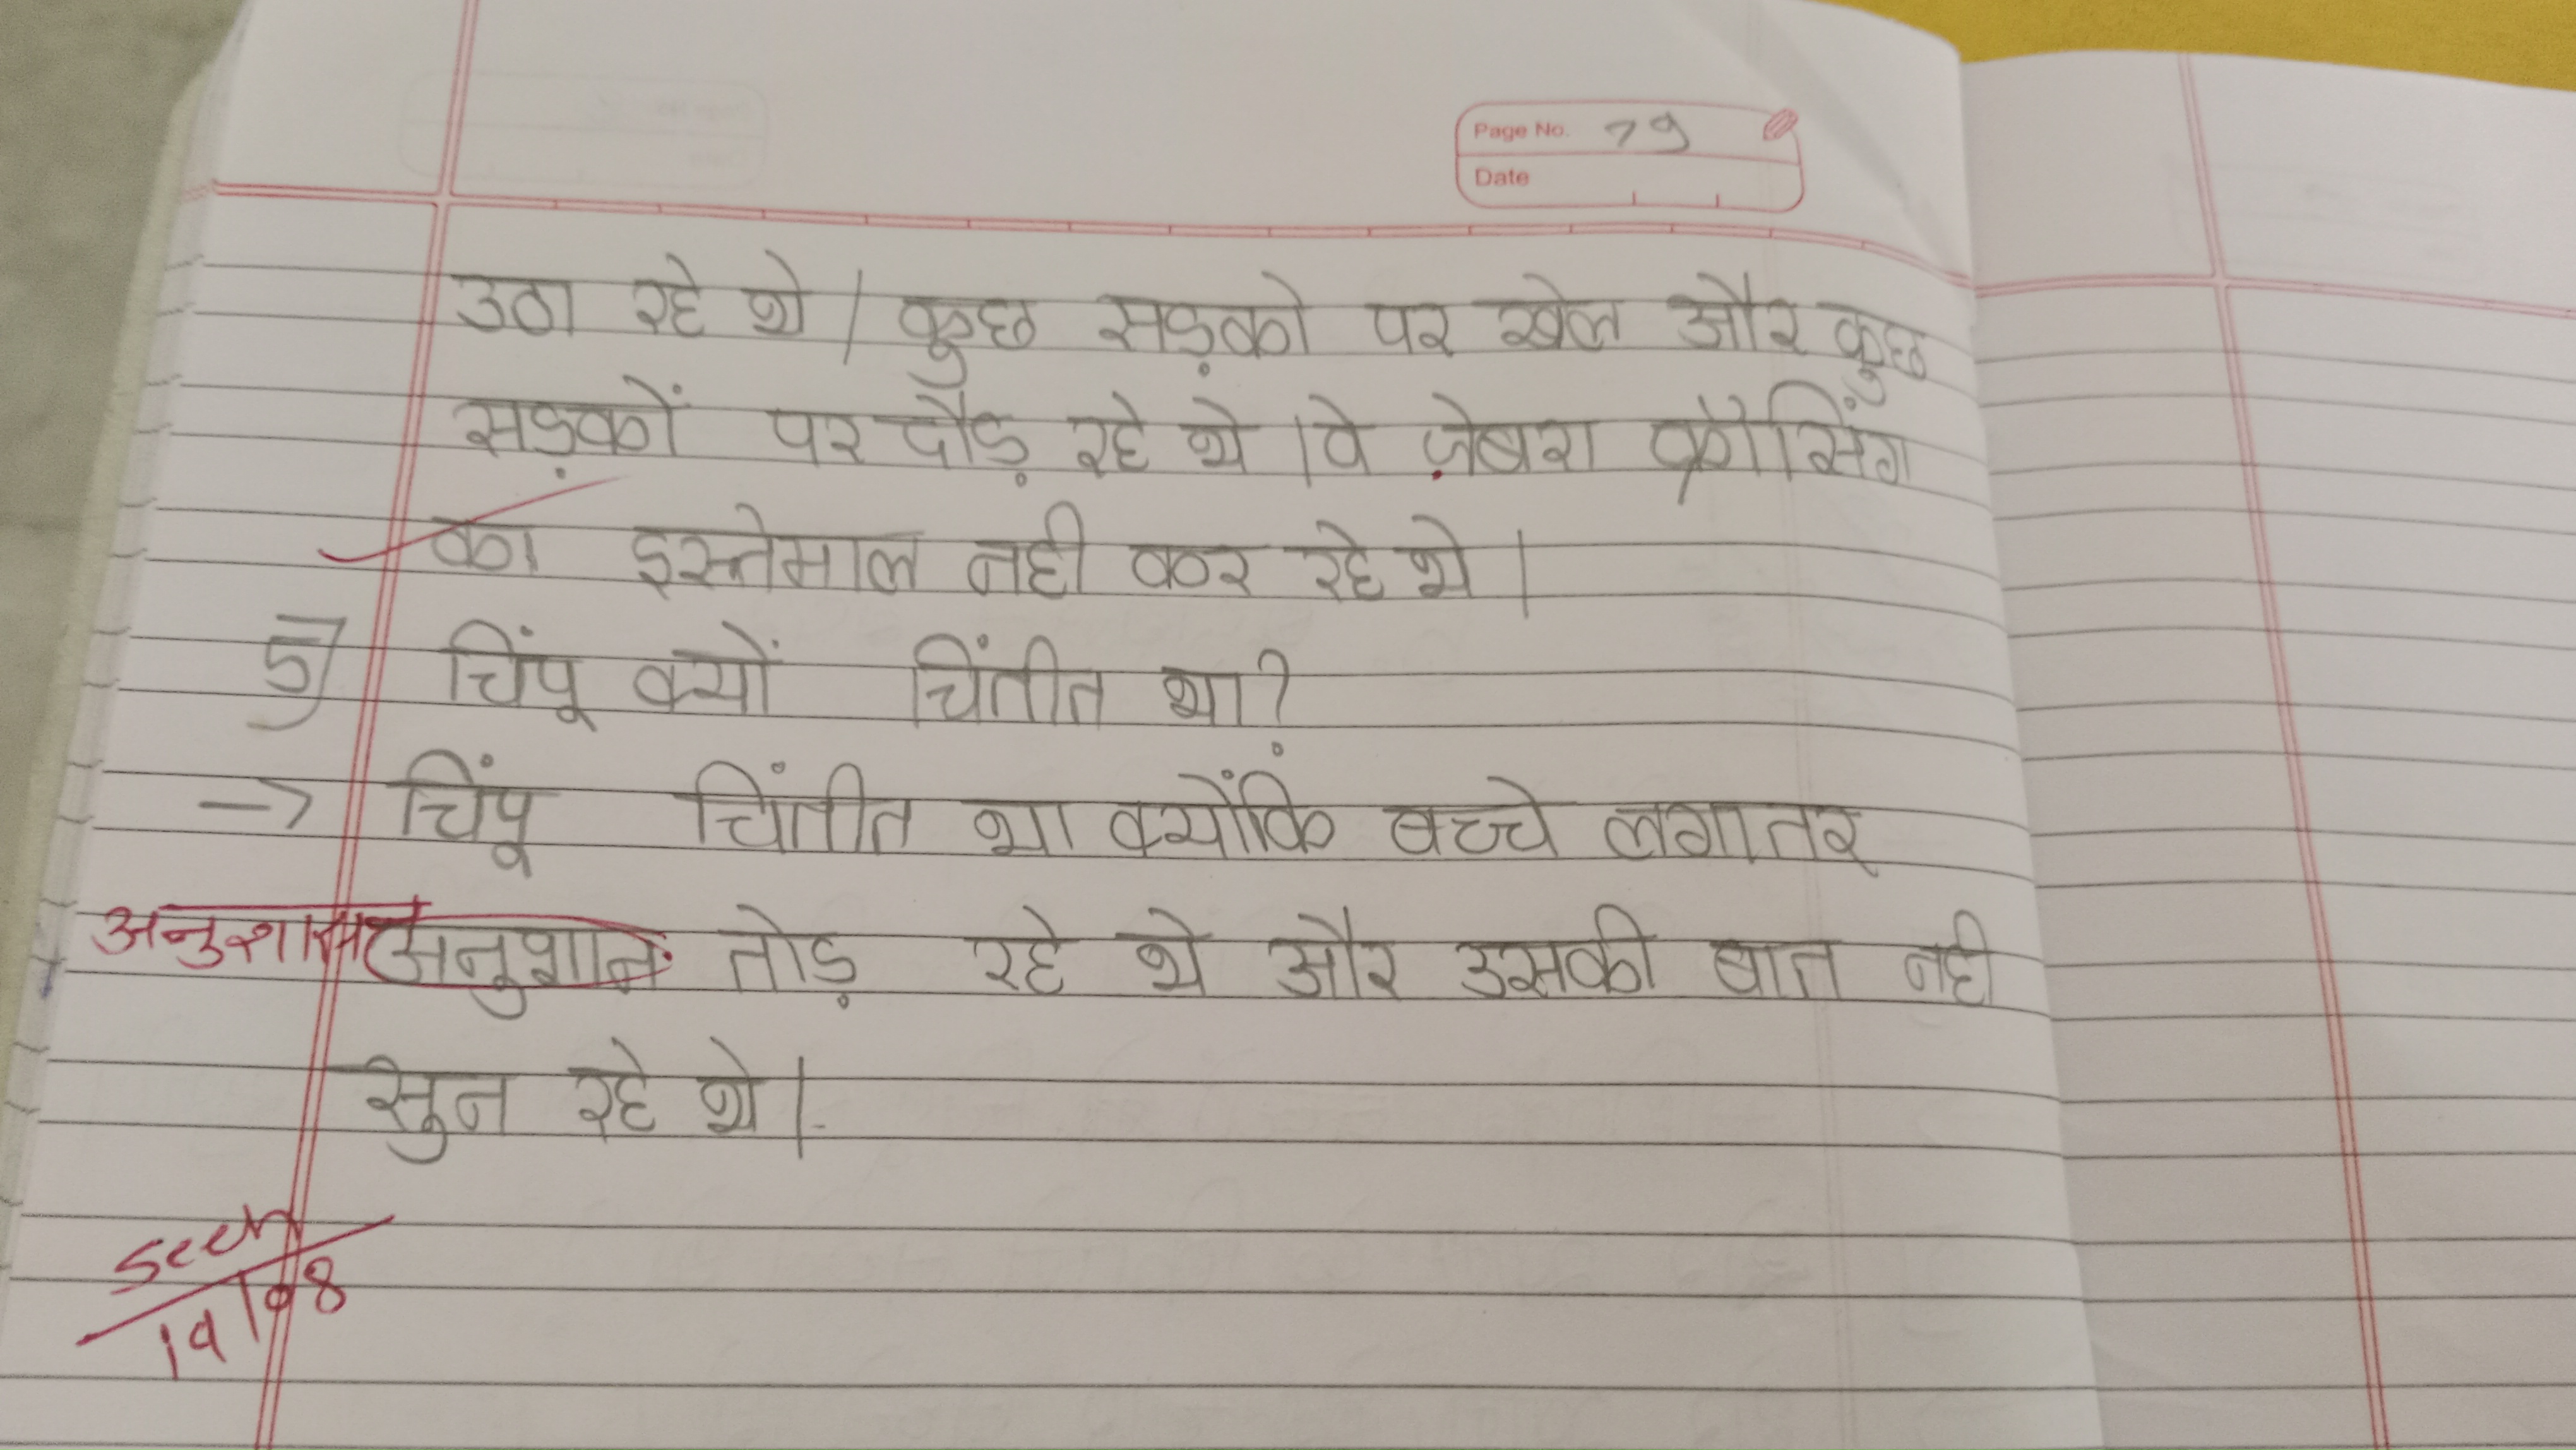 Page No. 79
Date
उठा रहे थे। कुछ सड़को पर खेल और कुछ
सड़कों पर दौड़ रहे थे। वे ज़ेबरा क्रॉसिंग
का इस्तेमाल नही कर रहे थे।
5] चिंपू क्यों चिंतीत था?
→ चिंपू चिंतीत था क्योंकि बच्चे लगातर
अनुशासन अनुशान तोड़ रहे थे और उसकी बात नही
सुन रहे थे।
seen
19/08